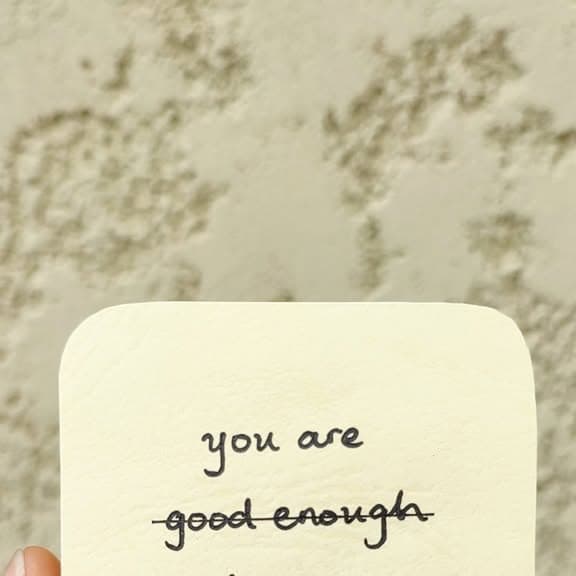 you are
good enough